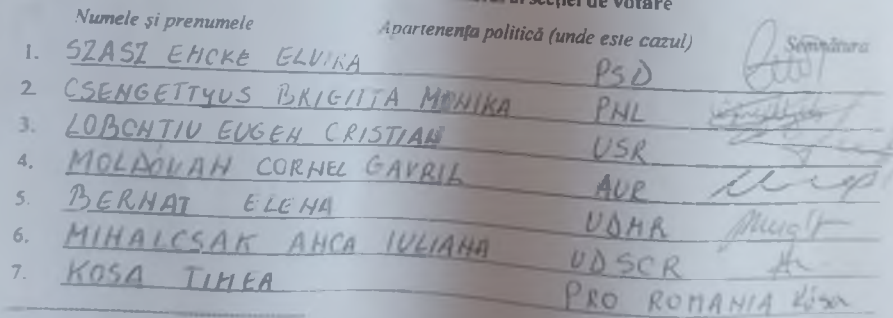 secției de votare
Numele și prenumele Apartenența politică (unde este cazul) Semnătura
1. SZASZ EMCKE ELVIRA PSD
2 CSENGETTYUS BRIGITTA MONIKA PNL
3. LOBONTIU EUGEN CRISTIAN USR
4. MOLDOVAN CORNEL GAVRIL AUR
5. BERNAT ELENA UDMR
6. MIHALCSAK ANCA IULIANA UDSCR
7. KOSA TIMEA PRO ROMANIA Kósa